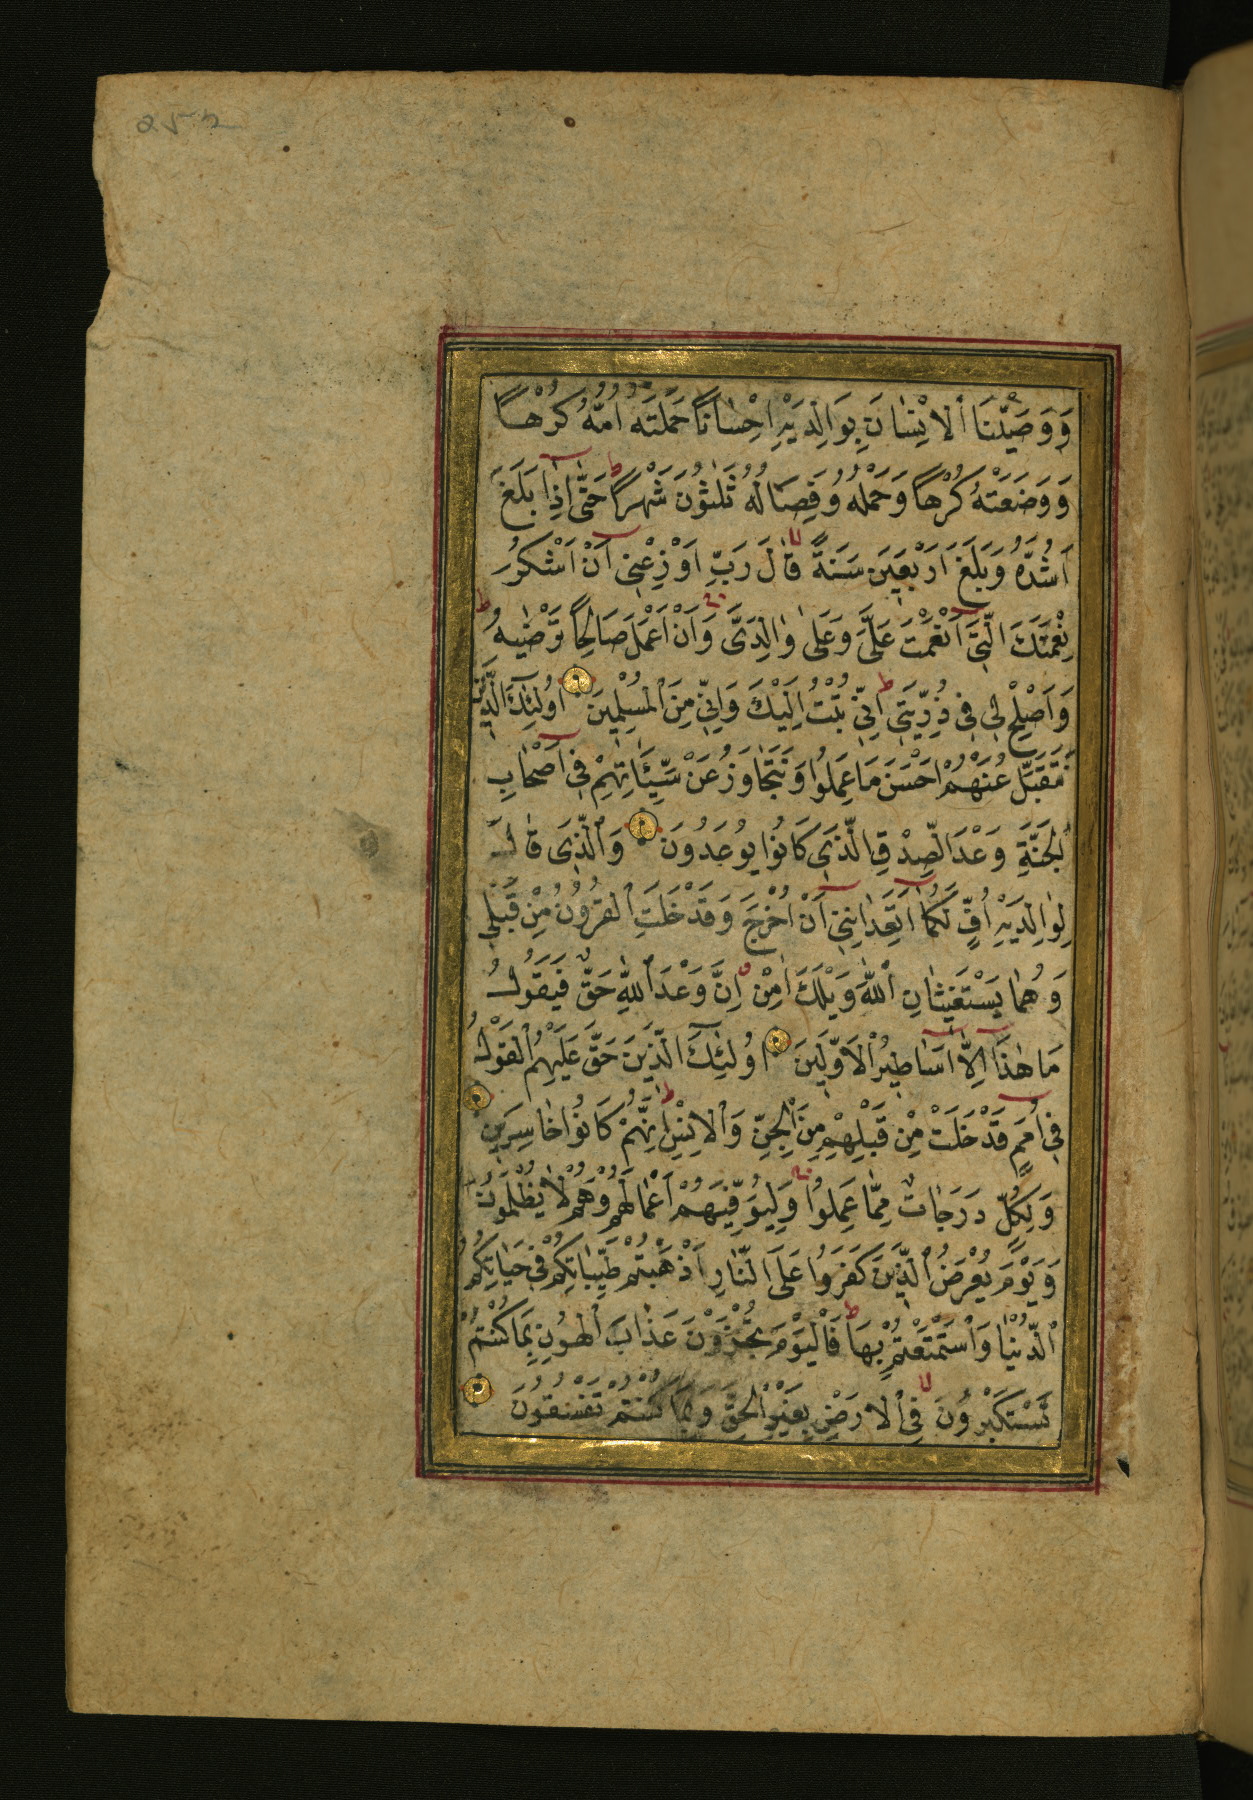 وَوَصَّيْنَا ٱلْاِنْسَانَ بِوَالِدَيْهِ اِحْسَانًا حَمَلَتْهُ اُمُّهُ كُرْهًا
وَوَضَعَتْهُ كُرْهًا وَحَمْلُهُ وَفِصَالُهُ ثَلٰثُونَ شَهْرًا ط حَتّٰى اِذَا بَلَغَ
اَشُدَّهُ وَبَلَغَ اَرْبَعِينَ سَنَةً لا قَالَ رَبِّ اَوْزِعْنِى اَنْ اَشْكُرَ
نِعْمَتَكَ الَّتِى اَنْعَمْتَ عَلَىَّ وَعَلٰى وٰالِدَىَّ وَاَنْ اَعْمَلَ صَالِحًا تَرْضٰيهُ ط
وَاَصْلِحْ لِى فِى ذُرِّيَّتِى ط اِنِّى تُبْتُ اِلَيْكَ وَاِنِّى مِنَ ٱلْمُسْلِمِينَ اُولٰئِكَ الَّذِينَ
نَتَقَبَّلُ عَنْهُمْ اَحْسَنَ مَا عَمِلُوا وَنَتَجَاوَزُ عَنْ سَيِّئَاتِهِمْ فِى اَصْحَابِ
ٱلْجَنَّةِ وَعْدَ الصِّدْقِ الَّذِى كَانُوا يُوعَدُونَ وَٱلَّذِى قَالَ
لِوٰالِدَيْهِ اُفٍّ لَكُمَا اَتَعِدَانِنِى اَنْ اُخْرَجَ وَقَدْ خَلَتِ ٱلْقُرُونُ مِنْ قَبْلِى
وَهُمَا يَسْتَغِيثَانِ ٱللّٰهَ وَيْلَكَ اٰمِنْ اِنَّ وَعْدَ ٱللّٰهِ حَقٌّ فَيَقُولُ
مَا هٰذَا اِلَّا اَسَاطِيرُ ٱلْاَوَّلِينَ اُولٰئِكَ الَّذِينَ حَقَّ عَلَيْهِمُ ٱلْقَوْلُ
فِى اُمَمٍ قَدْ خَلَتْ مِنْ قَبْلِهِمْ مِنَ ٱلْجِنِّ وَٱلْاِنْسِ ط اِنَّهُمْ كَانُوا خَاسِرِينَ
وَلِكُلٍّ دَرَجَاتٌ مِمَّا عَمِلُوا وَلِيُوَفِّيَهُمْ اَعْمَالَهُمْ وَهُمْ لَا يُظْلَمُونَ
وَيَوْمَ يُعْرَضُ ٱلَّذِينَ كَفَرُوا عَلَى النَّارِ اَذْهَبْتُمْ طَيِّبَاتِكُمْ فِى حَيَاتِكُمُ
ٱلدُّنْيَا وَٱسْتَمْتَعْتُمْ بِهَا ط فَٱلْيَوْمَ تُجْزَوْنَ عَذَابَ ٱلْهُونِ بِمَا كُنْتُمْ
تَسْتَكْبِرُونَ فِى ٱلْاَرْضِ بِغَيْرِ ٱلْحَقِّ وَبِمَا كُنْتُمْ تَفْسُقُونَ